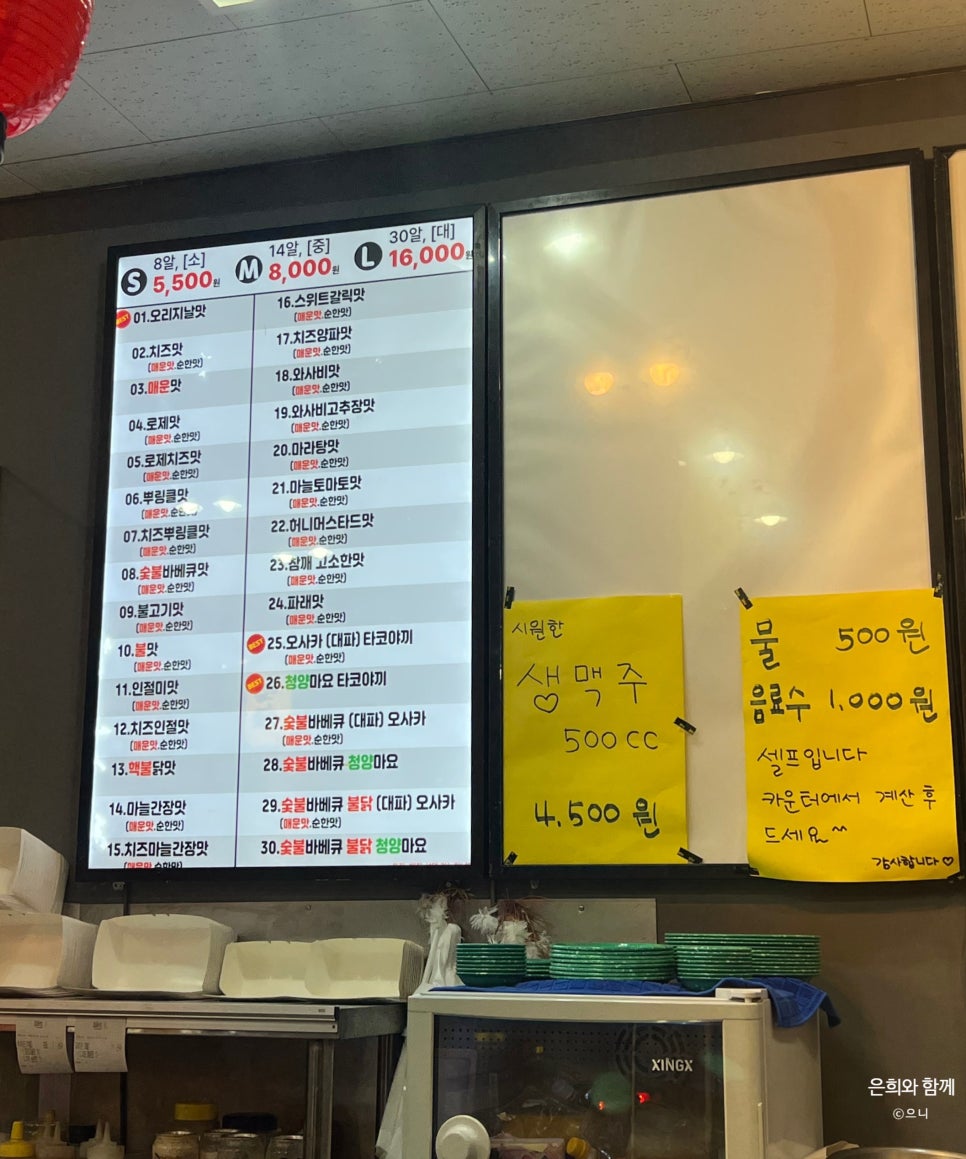 S 8알, [소] 5,500원
M 14알, [중] 8,000원
L 30알, [대] 16,000원
BEST 01.오리지날맛
02.치즈맛
(매운맛.순한맛)
03.매운맛
04.로제맛
(매운맛.순한맛)
05.로제치즈맛
(매운맛.순한맛)
06.뿌링클맛
(매운맛.순한맛)
07.치즈뿌링클맛
(매운맛.순한맛)
08.숯불바베큐맛
(매운맛.순한맛)
09.불고기맛
(매운맛.순한맛)
10.불맛
(매운맛.순한맛)
11.인절미맛
(매운맛.순한맛)
12.치즈인절맛
(매운맛.순한맛)
13.핵불닭맛
14.마늘간장맛
(매운맛.순한맛)
15.치즈마늘간장맛
(매운맛.순한맛)
16.스위트갈릭맛
(매운맛.순한맛)
17.치즈양파맛
(매운맛.순한맛)
18.와사비맛
(매운맛.순한맛)
19.와사비고추장맛
(매운맛.순한맛)
20.마라탕맛
(매운맛.순한맛)
21.마늘토마토맛
(매운맛.순한맛)
22.허니머스타드맛
(매운맛.순한맛)
23.참깨 고소한맛
(매운맛.순한맛)
24.파래맛
(매운맛.순한맛)
BEST 25.오사카 (대파) 타코야끼
(매운맛.순한맛)
BEST 26.청양마요 타코야끼
27.숯불바베큐 (대파) 오사카
(매운맛.순한맛)
28.숯불바베큐 청양마요
29.숯불바베큐 불닭 (대파) 오사카
(매운맛.순한맛)
30.숯불바베큐 불닭 청양마요
시원한
생맥주
500cc
4,500 원
물 500원
음료수 1,000원
셀프입니다
카운터에서 계산 후
드세요~
감사합니다♡
XINGX
은희와 함께
©으니